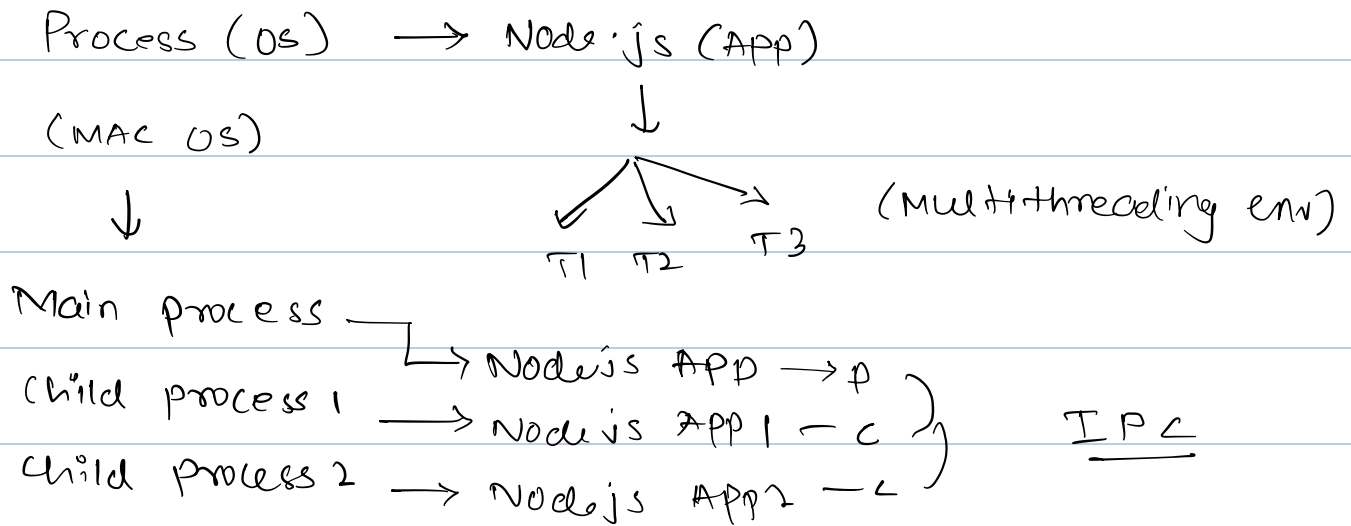 Process (OS) → Node.js (APP)
(MAC OS) ↓
↓ T1 T2 T3 (Multithreading env)
Main process → Nodejs APP → P
Child process 1 → Nodejs APP 1 - C
Child process 2 → Nodejs APP2 - C
IPC